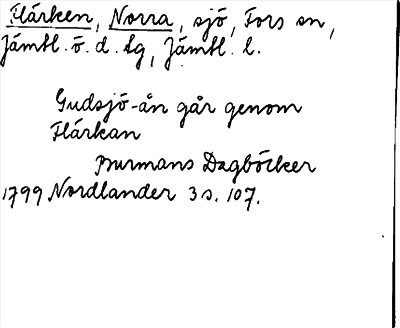 Flärken, Norra, sjö, Fors sn,
Jämtl. ö. d. tg, Jämtl. l.
Gudsjö-ån går genom
Flärkan
Burmans Dagböcker
1799 Nordlander 3 s. 107.